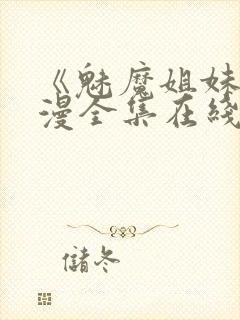 《魅魔姐妹
漫全集在线
储冬